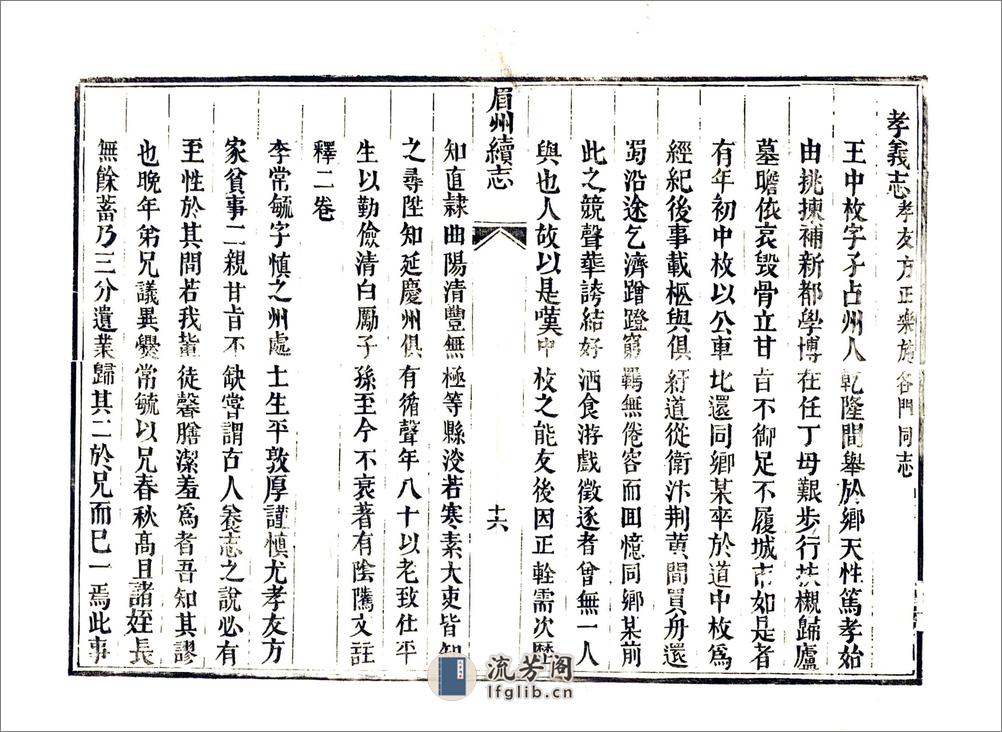 孝義志孝友方正樂施各門同志
王中枚字子占州人乾隆間舉於鄉天性篤孝始
由挑揀補新都學博在任丁母艱步行扶櫬歸廬
墓瞻依哀毀骨立甘旨不御足不履城市如是者
有年初中枚以公車北還同鄉某卒於道中枚為
經紀後事載柩與俱紆道從衛汴荆黄間買舟還
蜀沿途乞濟蹭蹬窮羈無倦容而囬憶同鄉某前
此之競聲華誇結好酒食游戲徵逐者曾無一人
與也人故以是嘆中枚之能友後因正銓需次歷
眉州續志
十六
知直隷曲陽清豐無極等縣淡若寒素大吏皆知
之尋陞知延慶州俱有循聲年八十以老致仕平
生以勤儉清白勵子孫至今不衰著有陰隲文註
釋二卷
李常毓字慎之州處士生平敦厚謹慎尤孝友方
家貧事二親甘旨不缺嘗謂古人養志之說必有
至性於其間若我輩徒馨膳潔羞爲者吾知其謬
也晚年弟兄議異爨常毓以兄春秋髙且諸姪長
無餘蓄乃三分遺業歸其二於兄而已一焉此事
流芳阁
lfglib.cn